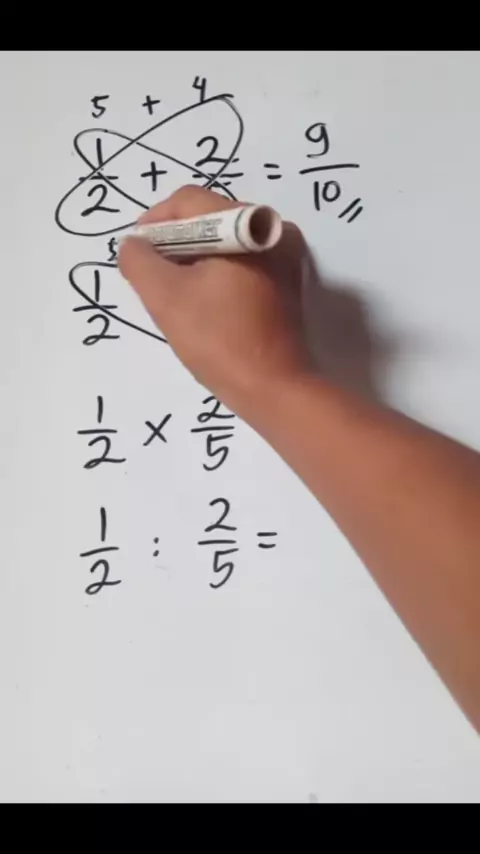 5 + 4
1/2 + 2/ = 9/10
5
1/2
1/2 × 2/5
1/2 : 2/5 =